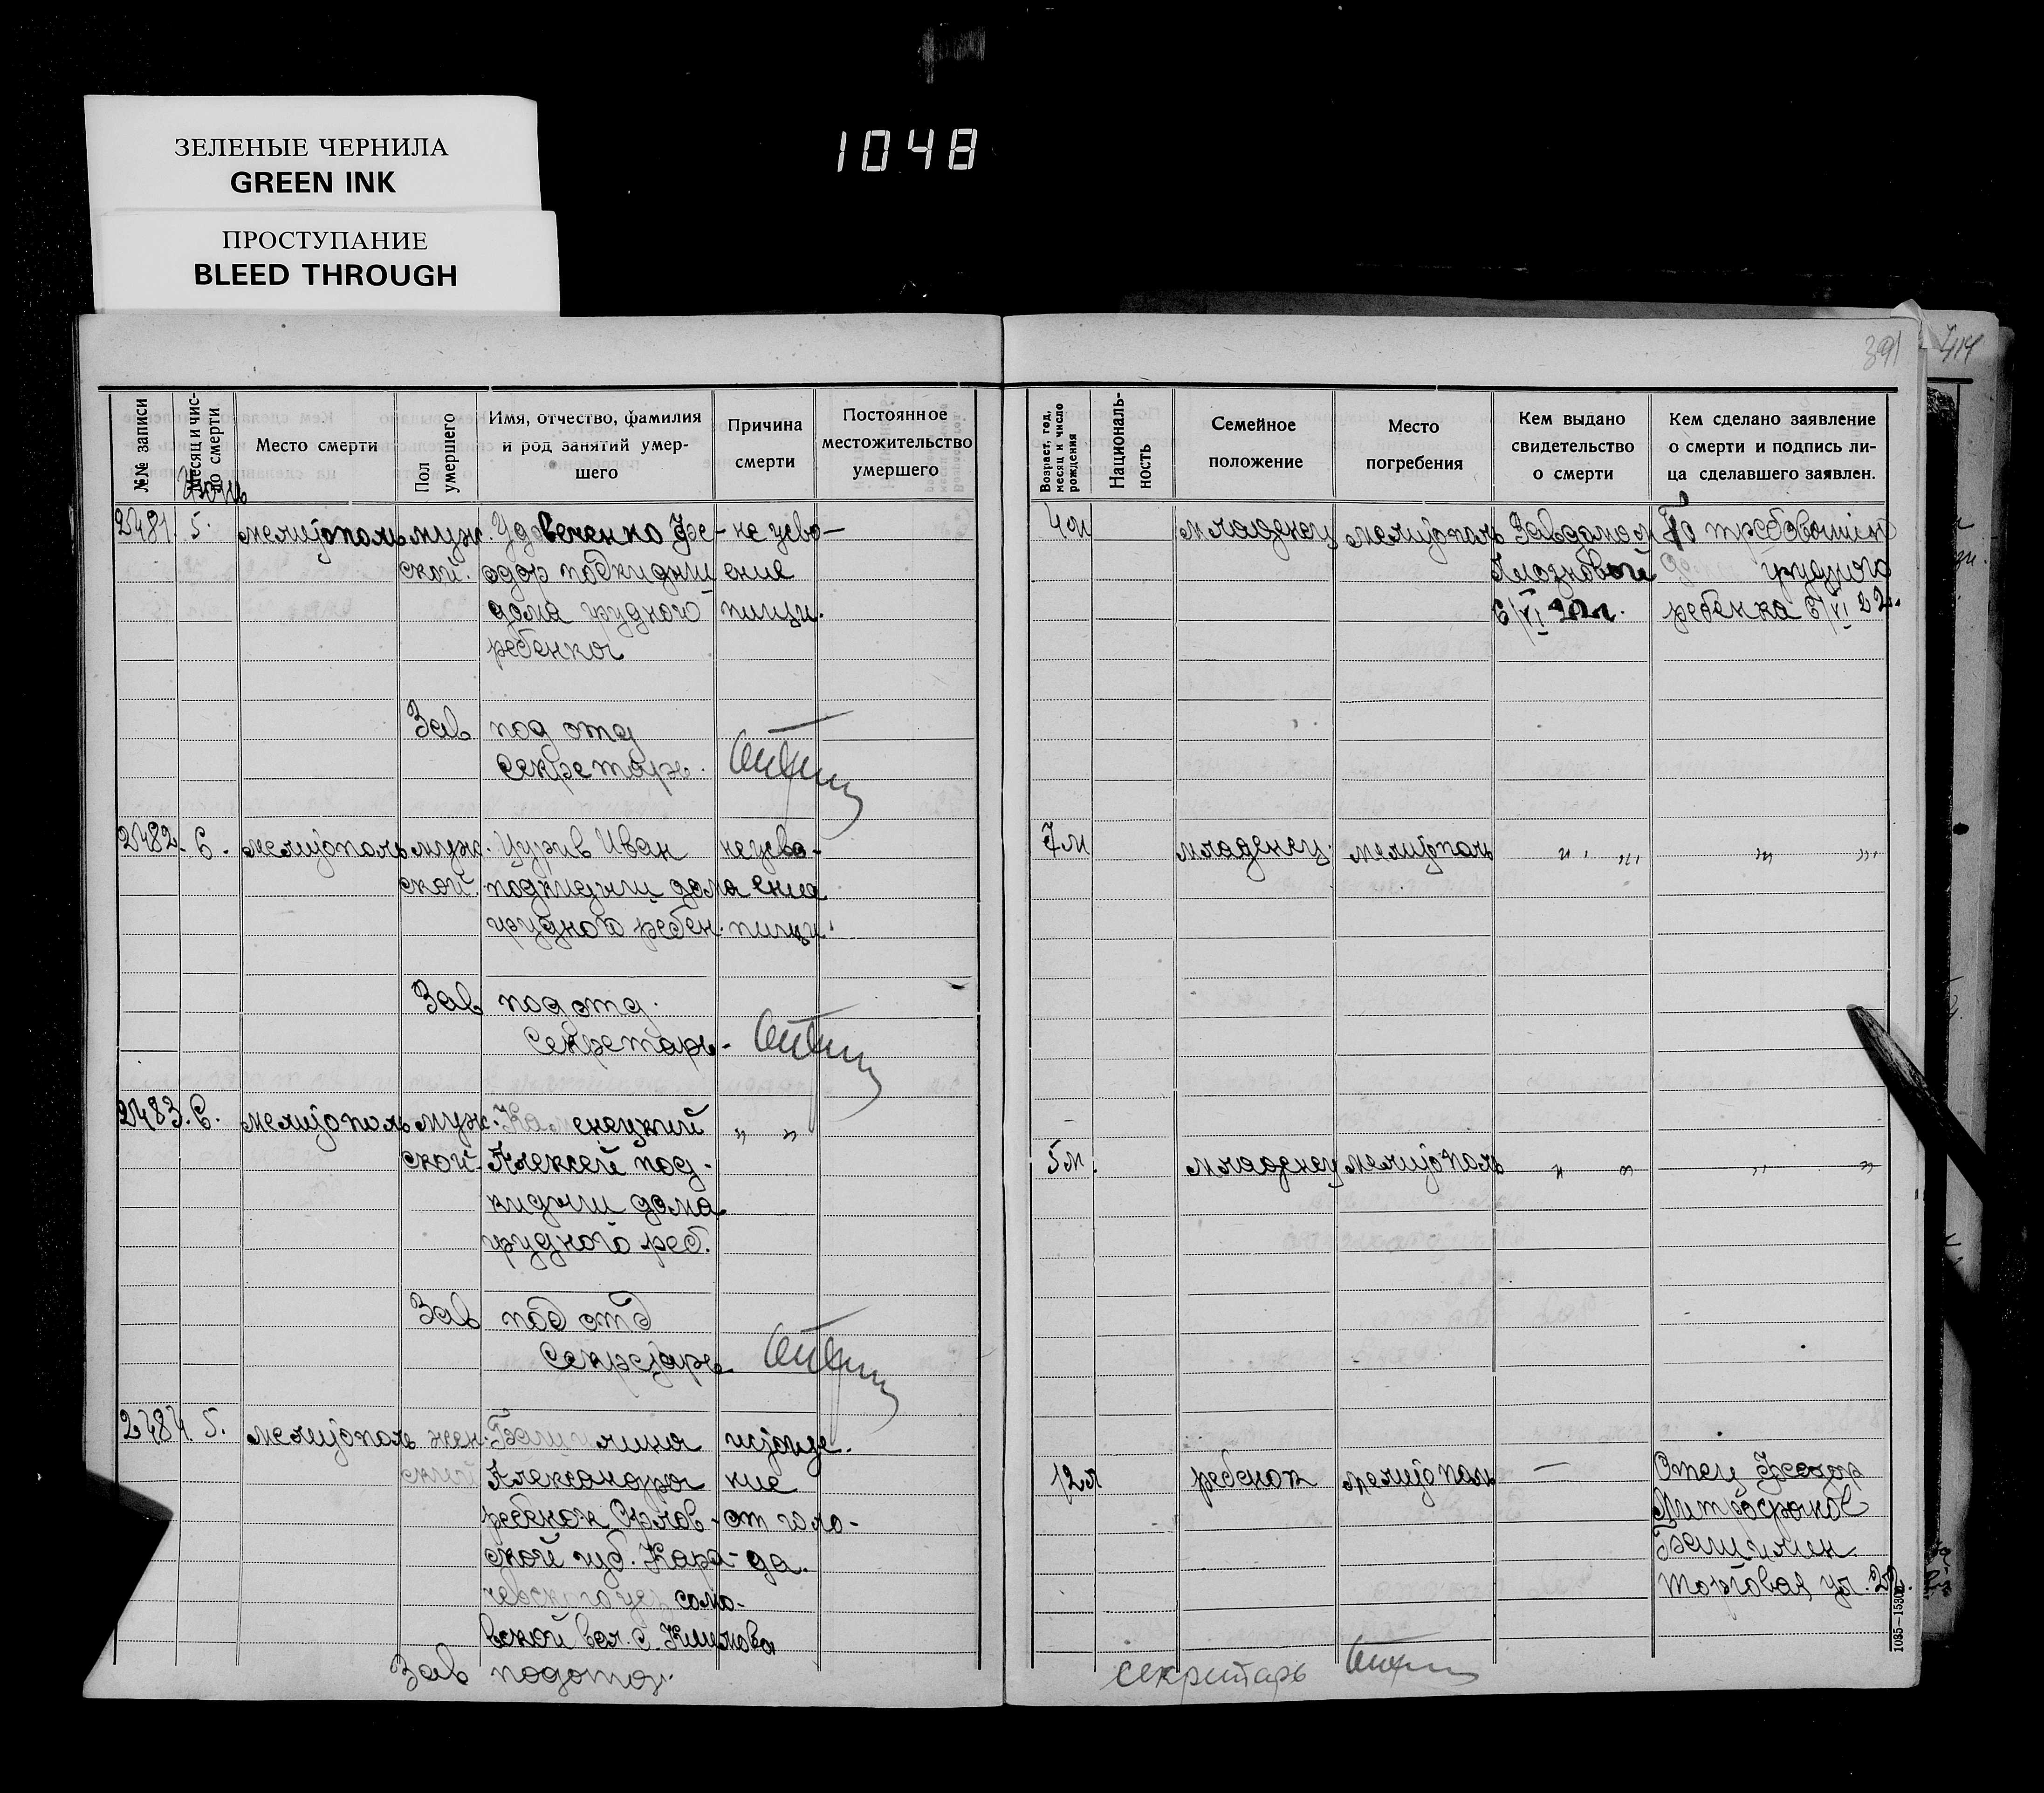 1048
ЗЕЛЕНЫЕ ЧЕРНИЛА
GREEN INK
ПРОСТУПАНИЕ
BLEED THROUGH
391
414
№№ записи
Месяц и чис-
ло смерти
Место смерти
Пол
умершего
Имя, отчество, фамилия
и род занятий умер-
шего
Причина
смерти
Постоянное
местожительство
умершего
Возраст, год,
месяц и число
рождения
Националь-
ность
Семейное
положение
Место
погребения
Кем выдано
свидетельство
о смерти
Кем сделано заявление
о смерти и подпись ли-
ца сделавшего заявлен.
Июнь
2481 5. мелитополь муж. Удовеченко Фе- не усво- 4 м младенец мелитополь Завдомом По требованию
ской. одор подкидыш ение грудного
дома грудного пищи. 6/VI 22 г. ребенка 6/VI 22.
ребенка
Зав под отд
Секретарь.
2482. 6. мелитополь муж. Цурив Иван неусво- 7 м младенец. мелитополь " " " "
ской. подкидыш дома ение
грудного ребен. пищи.
Зав под отд.
Секретарь-
2483. 6. мелитополь муж. Каменецкий " "
ской. Алексей под- 5 м. младенец мелитополь " " " "
кидыш дома
грудного реб.
Зав под отд
Секретарь
2484. 5. мелитополь жен. истоще-
ский Александра ние 12 л ребенок мелитополь — Отец Федор
ребенок Орлов- от голо- Митрофанов
ской губ. Кара- да.
чевского уез. само- Торговая ул. 22.
вской вол. с.
Зав подотд.
секритарь
1035-15300